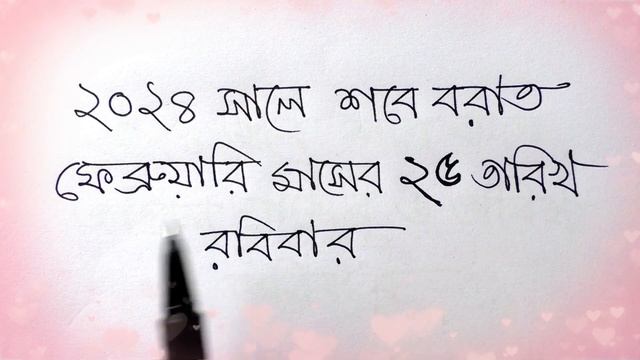 ২০২৪ সালে শবে বরাত
ফেব্রুয়ারি মাসের ২৫ তারিখ
রবিবার